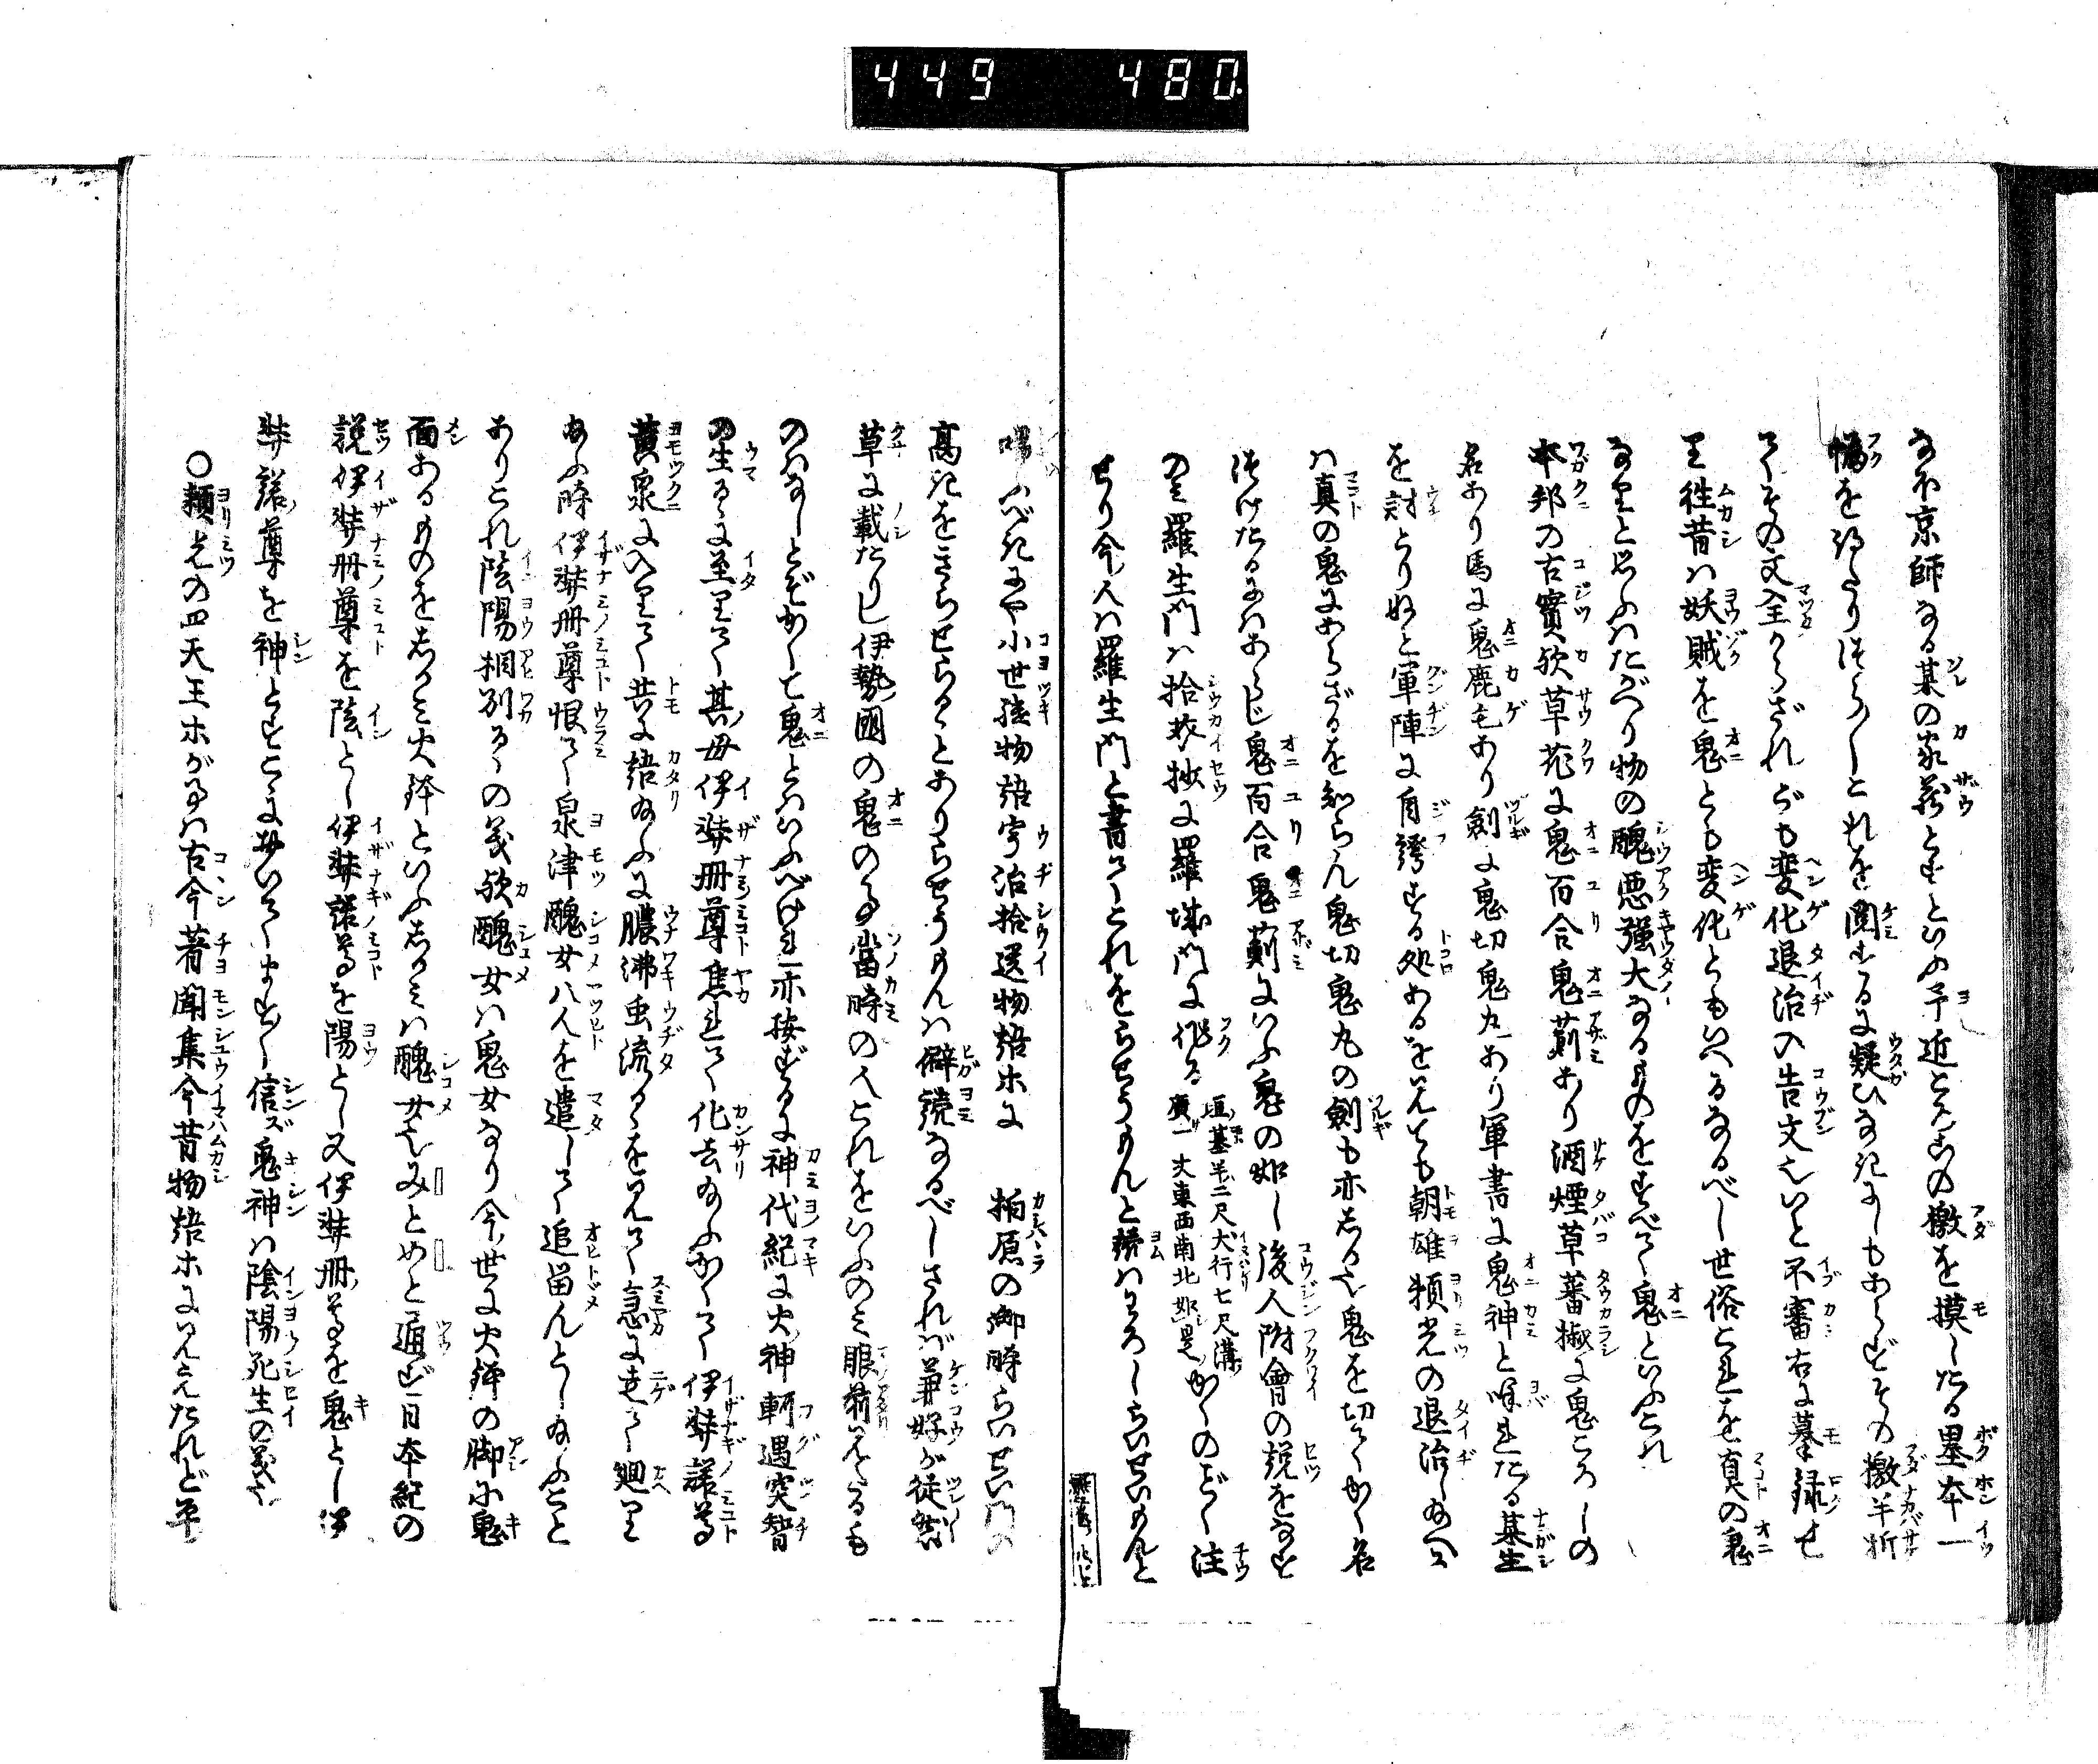 449 480
なか京師なる某の家蔵とすといふ予近ころこの檄を摸したる墨本一
幅を得たりけらしこれを閲するに疑ひなきにしもあらずその檄半折
てその文全からざれども変化退治の告文はいと不審右に摹録せ
り往昔は妖賊を鬼とも変化ともいへるなるべし世俗これを真の鬼
なりと思ふはたがへり物の醜悪強大なるものをすべて鬼といふこれ
本邦の古實欤草花に鬼百合鬼薊あり酒煙草蕃椒に鬼ころしの
名あり馬に鬼鹿毛あり劍に鬼切鬼丸あり軍書に鬼神と呼れたる某生
を討とり好と軍陣に自誇する処あるを見ても朝雄頼光の退治し給へる
は真の鬼にあらざるを知らん鬼切鬼丸の劍も亦しるし鬼を切てかく名
づけたるにはあらじ鬼百合鬼薊にいふ鬼の如し後人附會の説をなす
のミ羅生門は拾芥抄に羅城門に作る 垣基半二尺犬行七尺溝廣一丈東西南北如是 かくのごとく注
せり今人は羅生門と書てこれをらせうもんと稱はわろしらいせいもんと
唱ふべきにや小世継物語宇治拾遺物語ホに 柏原の御時らいせい門の
高きをきらせらるゝとありらせうもんは僻讀なるべしされバ兼好が徒然
草に載たりし伊勢國の鬼の事當時の人これをいふのミ眼前見たるも
のはなしとぞかくて鬼とはいふべけれ亦按ずるに神代紀に火神軻遇突智
の生るゝに至りて其母伊弉冊尊焦れて化去給ふかくて伊弉諾尊
黄泉に入りて共に語給ふに膿沸虫流るゝを見て急に走て廻り
給ふ時伊弉冊尊恨て泉津醜女八人を遣して追留んとし給ふこと
ありこれ陰陽相別るゝの義欤醜女は鬼女なり今世に火鉢の脚に鬼
面あるものをしかミ火鉢といふしかミは醜女也みとめと通ず日本紀の
説伊弉冊尊を陰とし伊弉諾尊を陽とし又伊弉冊尊を鬼とし伊
弉諾尊を神とすこゝに於いてますます信ズ鬼神は陰陽死生の義也
○頼光の四天王ホが事は古今著聞集今昔物語ホに見えたれど平